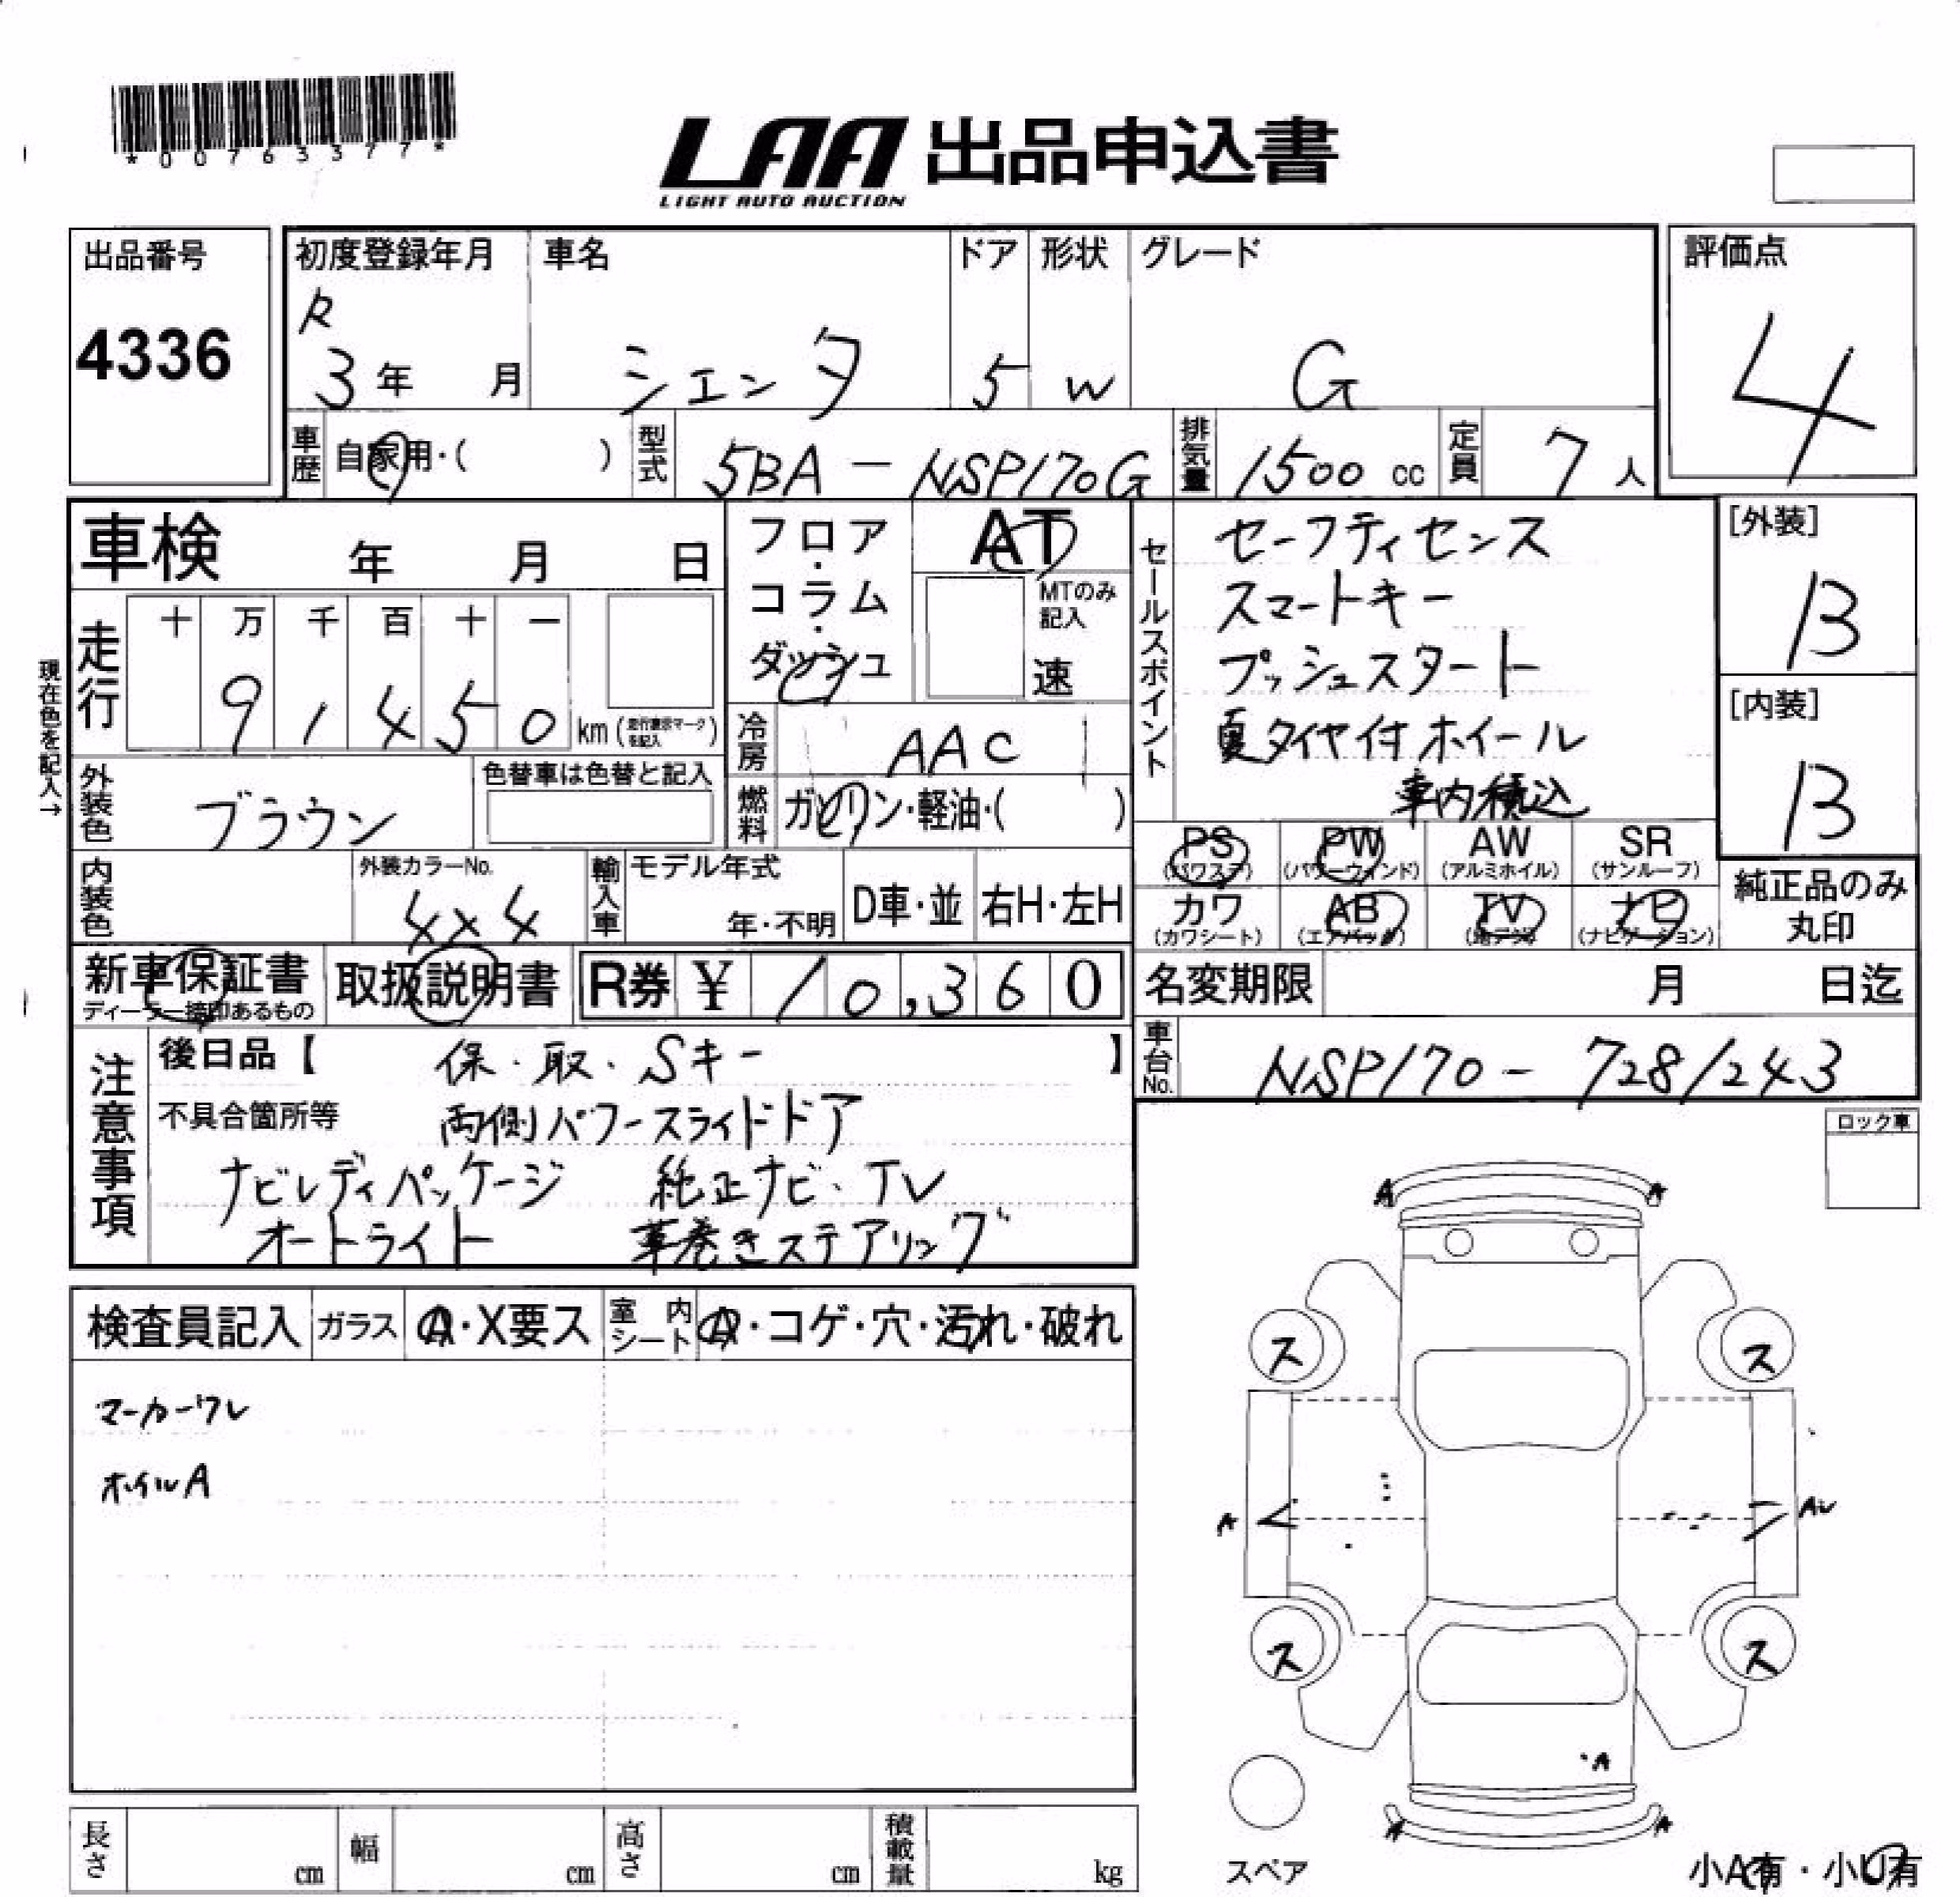 *00763377*
LAA 出品申込書
LIGHT AUTO AUCTION
出品番号
4336
初度登録年月
R
3年 月
車名
シエンタ
ドア
5
形状
W
グレード
G
評価点
4
車歴 自家用・( )
型式 5BA-NSP170G
排気量 1500 cc
定員 7 人
車検 年 月 日
フロア・コラム・ダッシュ
AT
MTのみ記入
速
現在色を記入→
走行
十 万 千 百 十 一
9 1 4 5 0 km (走行表示マークを記入)
冷房 AAC
燃料 ガソリン・軽油・( )
外装色 ブラウン
色替車は色替と記入
内装色
外装カラーNo.
4x4
輸入車
モデル年式
年・不明
D車・並
右H・左H
セールスポイント
セーフティセンス
スマートキー
プッシュスタート
夏タイヤ付ホイール
車内積込
[外装]
B
[内装]
B
PS (パワステ)
PW (パワーウインド)
AW (アルミホイル)
SR (サンルーフ)
カワ (カワシート)
AB (エアバック)
TV (地デジ)
ナビ (ナビゲーション)
純正品のみ
丸印
新車保証書
ディーラー捺印あるもの
取扱説明書
R券 ¥ 10,360
名変期限 月 日迄
車台No. NSP170-7281243
注意事項
後日品【 保・取・Sキー 】
不具合箇所等 両側パワースライドドア
ナビレディパッケージ 純正ナビ・TV
オートライト 革巻きステアリング
ロック車
検査員記入
ガラス A・X要ス
室内シート A・コゲ・穴・汚れ・破れ
マーカーワレ
ホイルA
A A
ス ス
A AU
ス ス
A
A A
スペア
小A有・小U有
長さ cm
幅 cm
高さ cm
積載量 kg